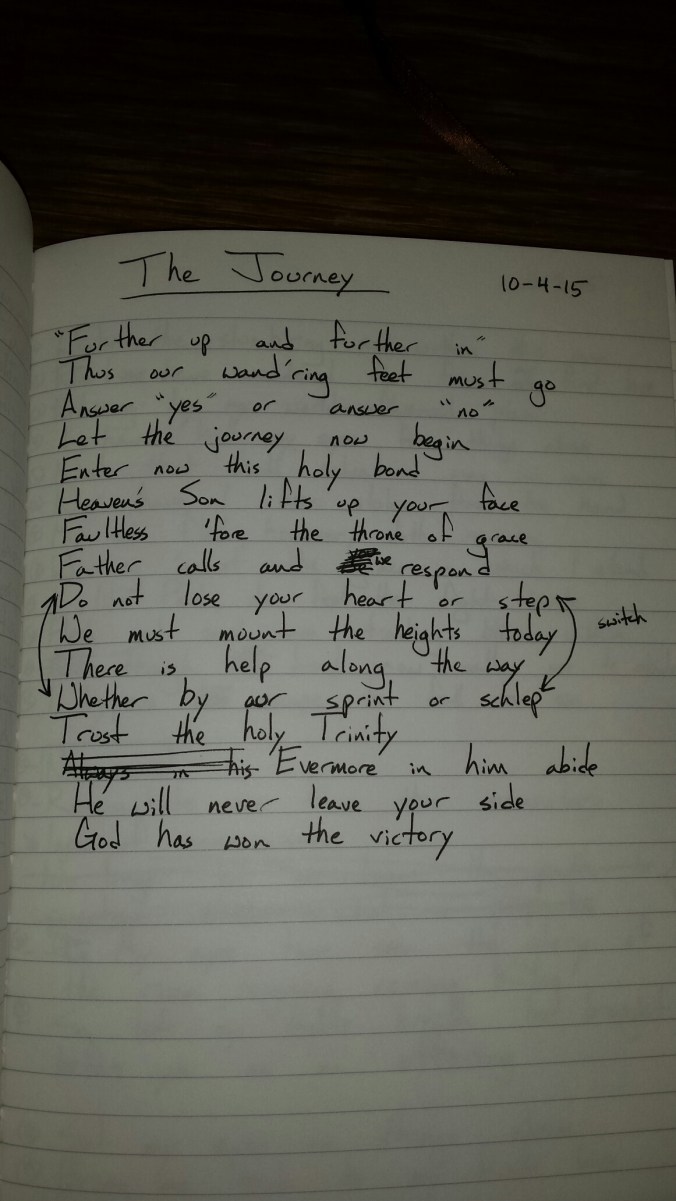 The Journey 10-4-15
"Further up and further in"
Thus our wand'ring feet must go
Answer "yes" or answer "no"
Let the journey now begin
Enter now this holy bond
Heaven's Son lifts up your face
Faultless 'fore the throne of grace
Father calls and we respond
Do not lose your heart or step
We must mount the heights today
switch
There is help along the way
Whether by our sprint or schlep
Trust the holy Trinity
Always in his Evermore in him abide
He will never leave your side
God has won the victory